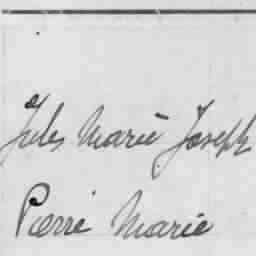 Jules Marie Joseph
Pierre Marie